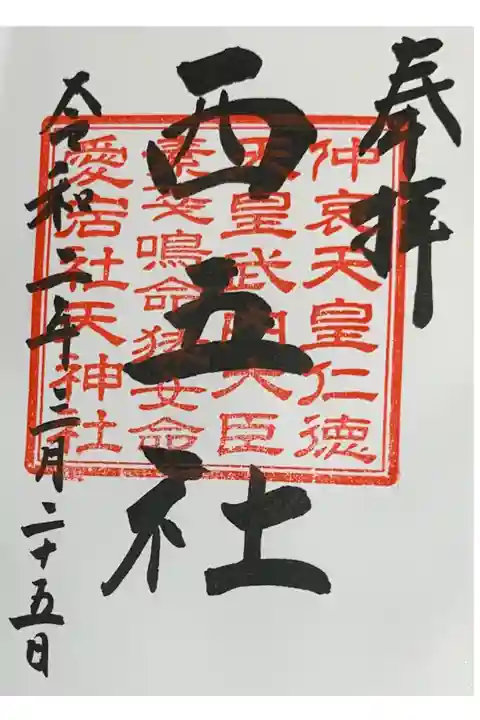 奉拝
西五社
令和二年三月二十五日
仲哀天皇仁徳
天皇武内大臣
素戔鳴命猿女命
愛宕社天神社